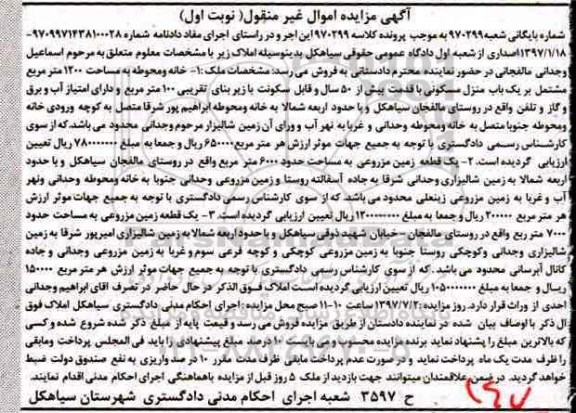 آگهی مزایده اموال غیر منقول( نوبت اول)
شماره بایگانی شعبه ۹۷۰۲۹۹ به موجب پرونده کلاسه ۹۷۰۲۹۹ این اجرو در راستای اجرای مفاد دادنامه شماره ۹۷۰۹۹۷۱۴۳۸۱۰۰۰۲۸-
۱۳۹۷/۱/۱۸اصداری از شعبه اول دادگاه عمومی حقوقی سیاهکل بدینوسیله املاک زیر با مشخصات معلوم متعلق به مرحوم اسماعیل
وجدانی مالفجانی در حضور نماینده محترم دادستانی به فروش می رسد: مشخصات ملک :۱- خانه ومحوطه به مساحت ۱۲۰۰ متر مربع
مشتمل بر یک باب منزل مسکونی با قدمت بیش از ۵۰ سال و قابل سکونت با زیر بنای تقریبی ۱۰۰ متر مربع و دارای امتیاز آب و برق
و گاز و تلفن واقع در روستای مالفجان سیاهکل و با حدود اربعه شمالا به خانه ومحوطه ابراهیم پور شرقا متصل به کوچه ورودی خانه
ومحوطه جنوبا متصل به خانه ومحوطه وجدانی و غربا به نهر آب و ورای آن زمین شالیزار مرحوم وجدانی محدود می باشد.که از سوی
کارشناس رسمی دادگستری با توجه به جمیع جهات موثر ارزش هر متر مربع ۶۵۰۰۰۰ ریال و جمعا به مبلغ ۷۸۰۰۰۰۰۰۰ ریال تعیین
ارزیابی گردیده است. ۲- یک قطعه زمین مزروعی به مساحت حدود ۶۰۰۰ متر مربع واقع در روستای مالفجان سیاهکل و با حدود
اربعه شمالا به زمین شالیزاری وجدانی شرقا به جاده آسفالته روستا و زمین مزروعی وجدانی جنوبا به خانه ومحوطه وجدانی ونهر
آب و غربا به زمین مزروعی زینعلی محدود می باشد. که از سوی کارشناس رسمی دادگستری با توجه به جمیع جهات موثر ارزش
هر متر مربع ۲۰۰۰۰۰ ریال و جمعا به مبلغ ۱۲۰۰۰۰۰۰۰۰ ریال تعیین ارزیابی گردیده است. ۳- یک قطعه زمین مزروعی به مساحت حدود
۷۰۰۰ متر مربع واقع در روستای مالفجان -خیابان شهید ذوقی سیاهکل و با حدود اربعه شمالا به زمین شالیزاری امیرپور شرقا به زمین
شالیزاری وجدانی وکوچکی روستا جنوبا به زمین مزروعی کوچکی و کوچه فرعی سوم و غربا به زمین مزروعی وجدانی و جاده
کانال آبرسانی محدود می باشد .که از سوی کارشناس رسمی دادگستری با توجه به جمیع جهات موثر ارزش هر متر مربع ۱۵۰۰۰۰
ریال و جمعا به مبلغ ۱۰۵۰۰۰۰۰۰۰ ریال تعیین ارزیابی گردیده است املاک فوق الذکر در حال حاضر در تصرف اقای ابراهیم وجدانی
احدی از وراث قرار دارد. روز مزایده :۱۳۹۷/۷/۲ ساعت ۱۰-۱۱ صبح محل مزایده :اجرای احکام مدنی دادگستری سیاهکل املاک فوق
ال ذکر با اوصاف بیان شده در نماینده دادستان از طریق مزایده فروش می رسد و قیمت پایه از مبلغ ذکر شده شروع شده و کسی
که بالاترین مبلغ را پیشنهاد نماید برنده مزایده محسوب و می بایست ۱۰ درصد مبلغ پیشنهادی را باید فی المجلس پرداخت ومابقی
را ظرف مدت یک ماه پرداخت نماید و در صورت عدم پرداخت مابقی ظرف مدت مقرر ۱۰ درصد واریزی به نفع صندوق دولت ضبط
خواهد گردید. در ضمن علاقمندان میتوانند جهت بازدید از ملک ۵ روز قبل از مزایده باهماهنگی اجرای احکام مدنی اقدام نمایند.
ح ۳۵۹۷ شعبه اجرای احکام مدنی دادگستری شهرستان سیاهکل